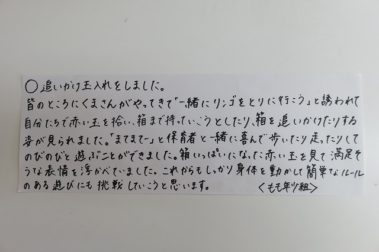 ○追いかけ玉入れをしました。
皆のところにくまさんがやってきて“一緒にリンゴをとりに行こう”と誘われて
自分たちで赤い玉を拾い、箱まで持っていこうとしたり、箱を追いかけたりする
姿が見られました。“まてまてー”と保育者と一緒に喜んで歩いたり走ったりして
のびのびと遊ぶことができました。箱いっぱいになった赤い玉を見て満足そ
うな表情を浮かべていました。これからもしっかり身体を動かして簡単なルール
のある遊びにも挑戦していこうと思います。 〈もも年少組〉